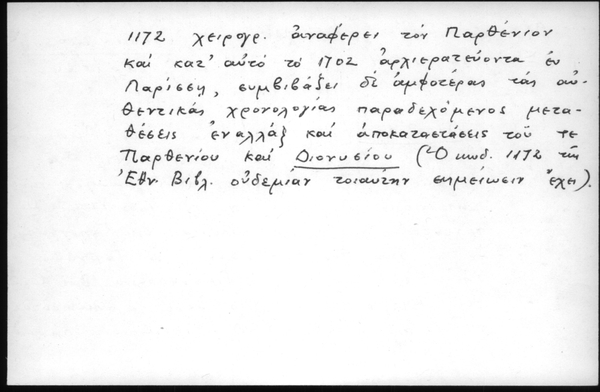 1172 χειρογρ. ἀναφέρει τὸν Παρθένιον
καὶ κατ' αὐτὸ τὸ 1702 ἀρχιερατεύοντα ἐν
Λαρίσσῃ, συμβιβάζει δὲ ἀμφοτέρας τὰς αὐ-
θεντικὰς χρονολογίας παραδεχόμενος μετα-
θέσεις ἐναλλὰξ καὶ ἀποκαταστάσεις τοῦ τε
Παρθενίου καὶ Διονυσίου (Ὁ κωδ. 1172 τῆς
Ἐθν. Βιβλ. οὐδεμίαν τοιαύτην σημείωσιν ἔχει).